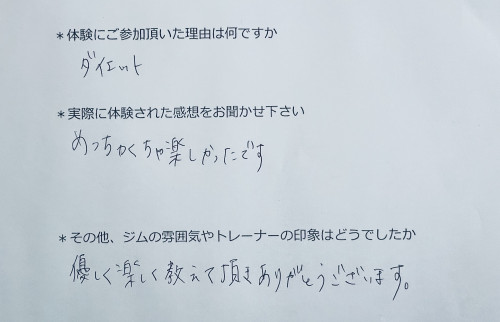 ＊体験にご参加頂いた理由は何ですか
ダイエット
＊実際に体験された感想をお聞かせ下さい
めっちゃくちゃ楽しかったです
＊その他、ジムの雰囲気やトレーナーの印象はどうでしたか
優しく楽しく教えて頂きありがとうございます。